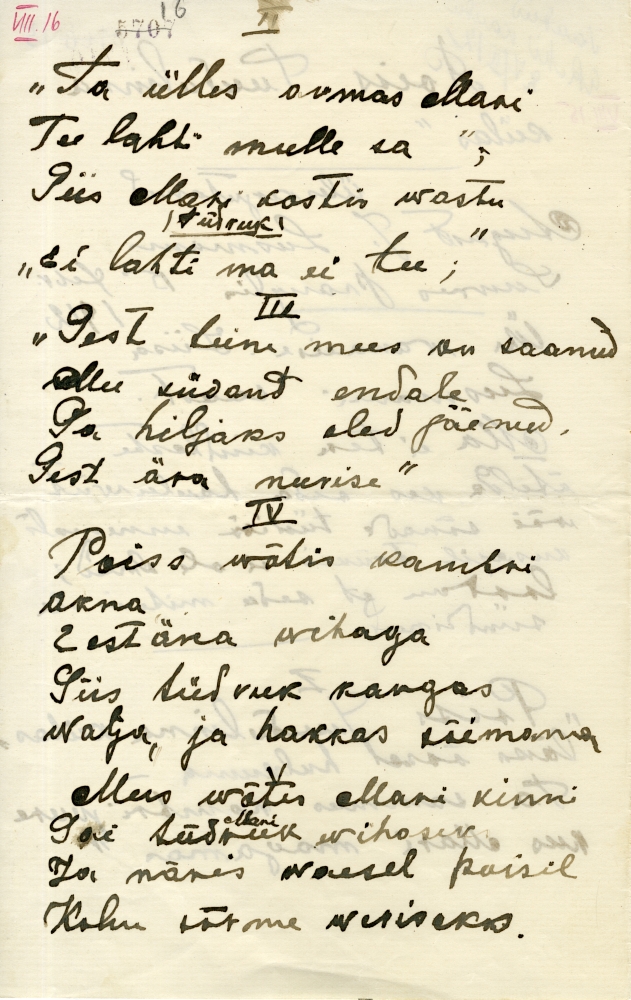 VIII. 16
16
5707
II
„Ta ülles armas Mari
Tee lahti mulle sa“;
Siis Mari kostis wastu
(tüdruk)
„Ei lahti ma ei tee;“
III
„Sest teine mees on saanud
Mu südant endale
Sa hiljaks oled jäenud,
Sest ära nurise“
IV
Poiss wõtis kambri
akna
Eest ära wihaga
Siis tüdruk kargas
walja, ja hakkas sõimama
V
Mees wõttis Mari kinni
Mari
Sai tüdruk wihasek
Ja näris waesel poisil
Kohe sõrme werisekks.